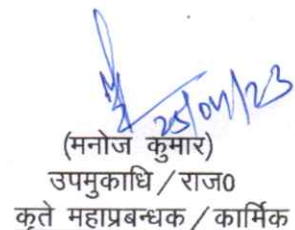 25/04/23
(मनोज कुमार)
उपमुकाधि / राज0
कृते महाप्रबन्धक / कार्मिक